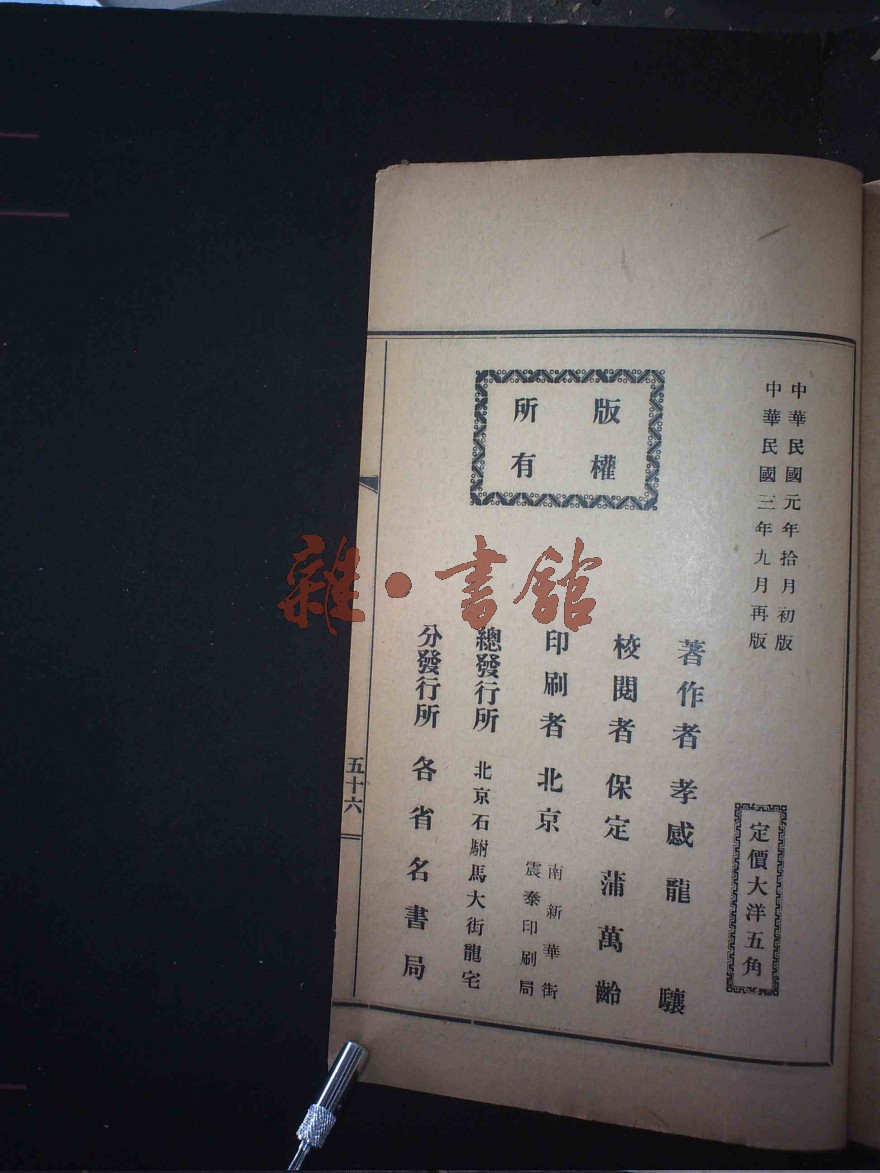 中華民國元年拾月初版
中華民國三年九月再版
定價大洋五角
版權
所有
著作者孝感龍驤
校閱者保定蒲萬齡
印刷者北京南新華街
震泰印刷局
總發行所北京石駙馬大街龍宅
分發行所各省名書局
五十六
雜·書館